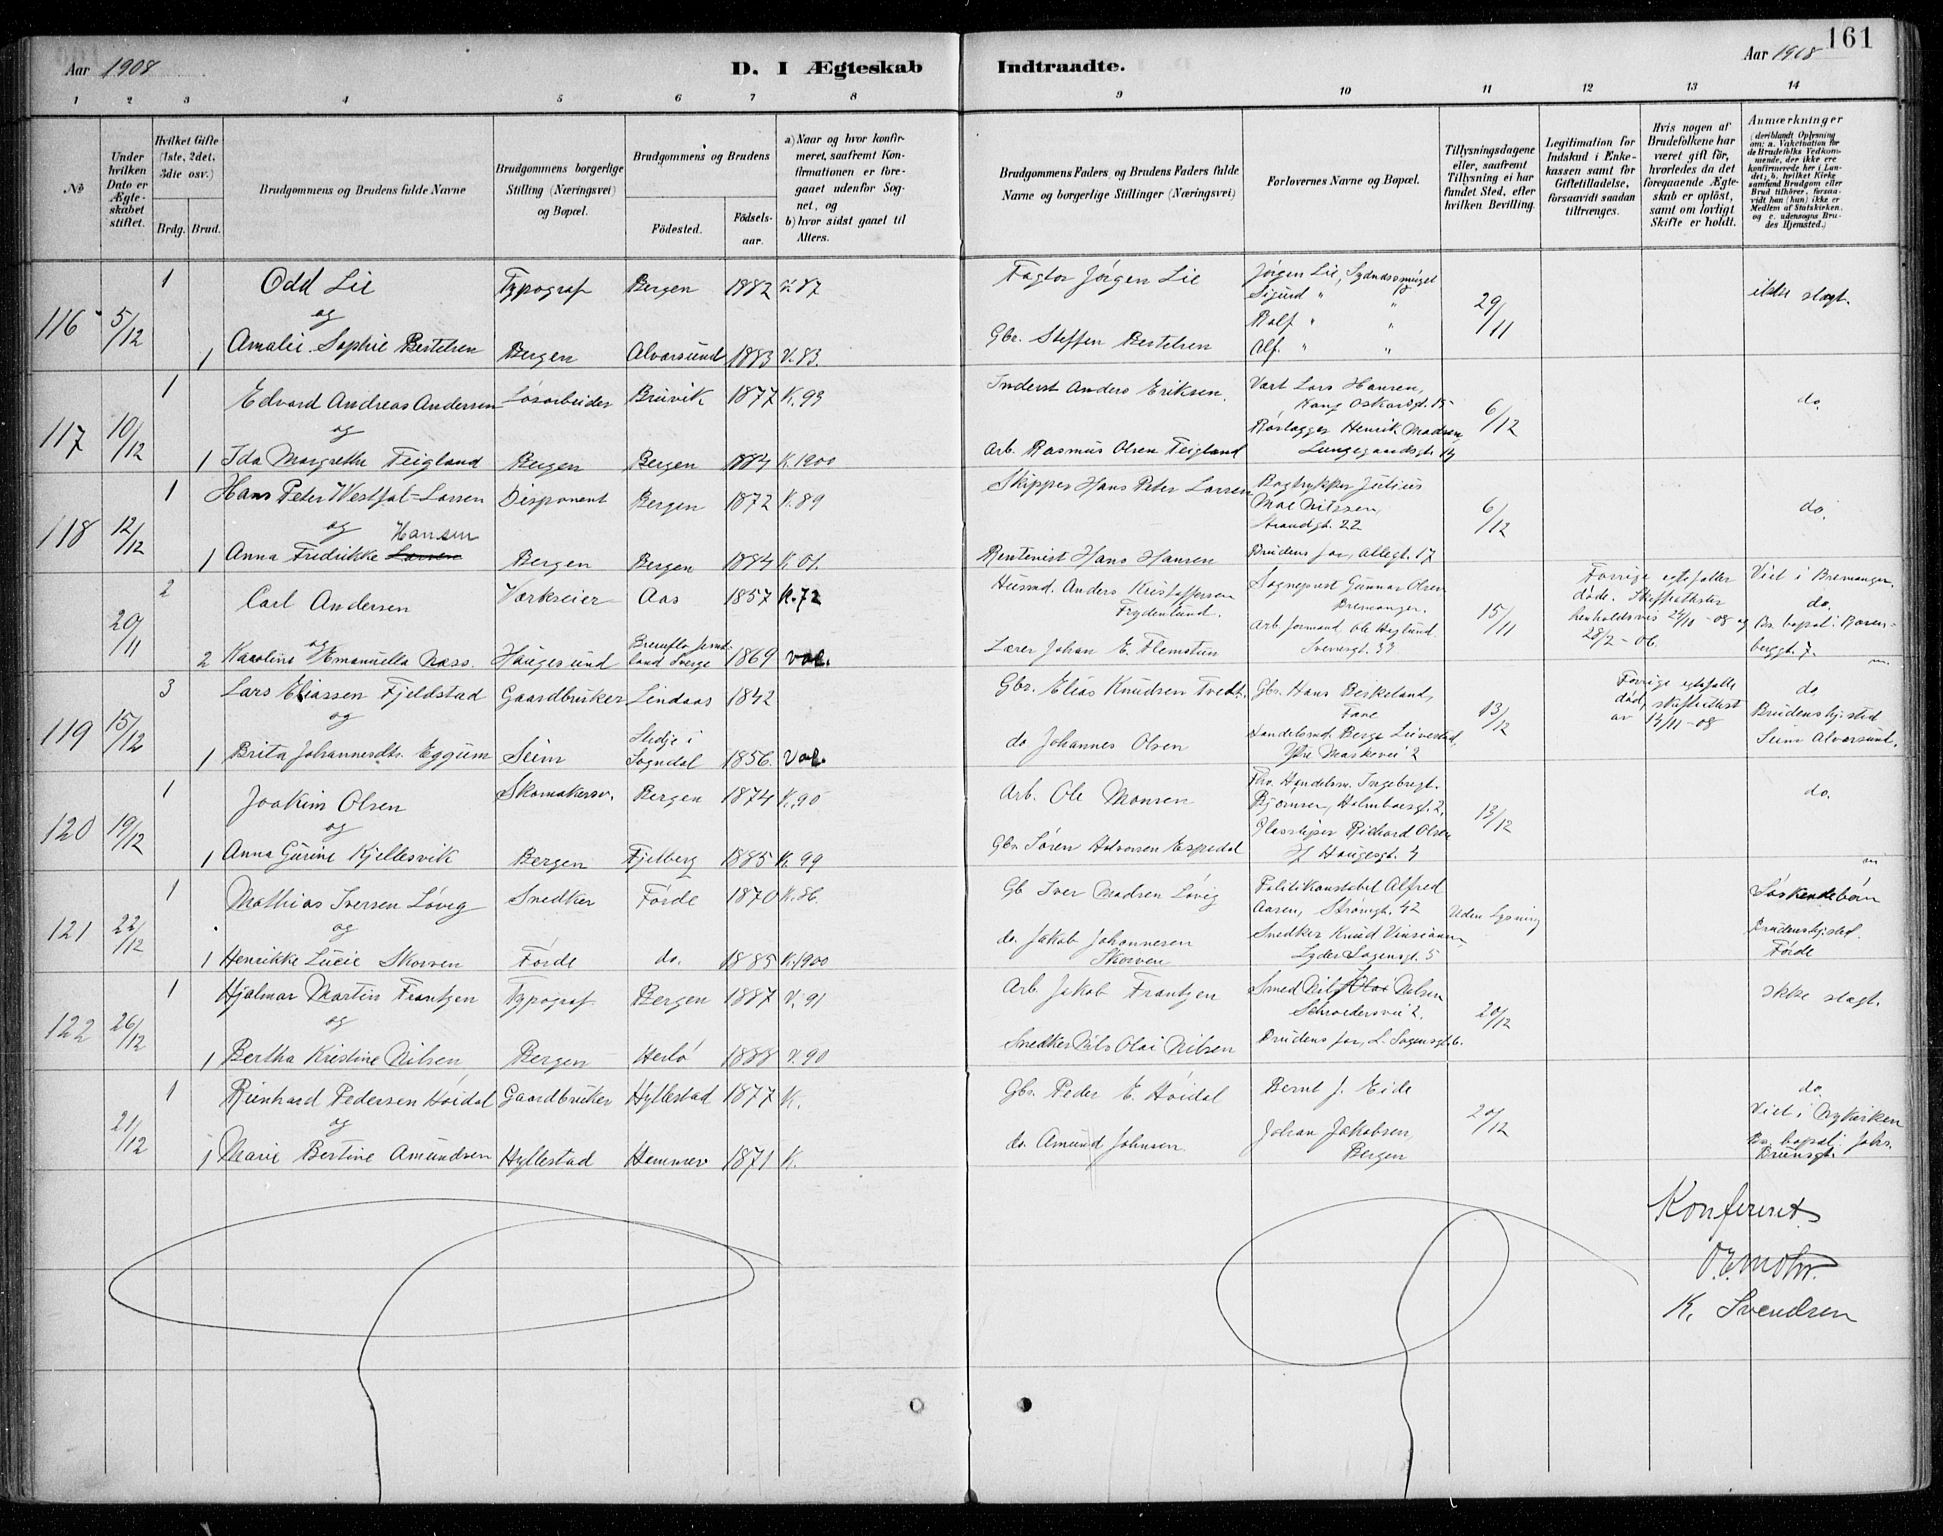 161
Aar 1908
D. I Ægteskab
Indtraadte.
Aar 1908
1 2 3 4 5 6 7 8 9 10 11 12 13 14
No
Under hvilken Dato er Ægteskabet stiftet.
Hvilket Gifte (1ste, 2det, 3die osv.)
Brdg. Brud.
Brudgommens og Brudens fulde Navne
Brudgommens borgerlige Stilling (Næringsvei) og Bopæl.
Brudgommens og Brudens
Fødested.
Fødselsaar.
a) Naar og hvor konfirmeret, saafremt Konfirmationen er foregaaet udenfor Sognet, og
b) hvor sidst gaaet til Alters.
Brudgommens Faders og Brudens Faders fulde Navne og borgerlige Stillinger (Næringsvei)
Forlovernes Navne og Bopæl.
Tillysningsdagene eller, saafremt Tillysning ei har fundet Sted, efter hvilken Bevilling.
Legitimation for Indskud i Enkekassen samt for Giftetilladelse, forsaavidt saadan tiltrænges.
Hvis nogen af Brudefolkene har været gift før, hvorledes da det foregaaende Ægteskab er opløst, samt om lovligt Skifte er holdt.
Anmærkninger
(deriblandt Oplysning om: a. Vakcination for de Brudefolks Vedkommende, der ikke ere konfirmerede her i Landet; b. hvilket Kirkesamfund Brudgom eller Brud tilhører, forsaavidt han (hun) ikke er Medlem af Statskirken, og c. udensogns Brudes Hjemsted.)
116 5/12 1 Odd Lie Typograf Bergen 1882 V. 87 Fagtor Jørgen Lie Jørgen Lie, Sydnæssmuget 29/11 ikke slægt.
og Sigurd " "
Ralf " "
1 Amalie Sophie Bertelsen Bergen Alversund 1883 V. 83. Gbr. Steffen Bertelsen Alf. " "
117 10/12 1 Edvard Andreas Andersen Løsarbeider Breivik 1877 K. 93 Inderst Anders Eriksen. Vært Lars Hansen, 6/12 do.
Kong Oskarsgt. 15
og Rørlægger Henrik Madsen
1 Ida Margrethe Feigland Bergen Bergen 1884 K. 1900 Arb. Rasmus Olsen Feigland Lungegaardsgt. 14
118 12/12 1 Hans Peter Westfal-Larsen Disponent Bergen 1872 K. 89 Skipper Hans Peter Larsen Bogtrykker Julius 6/12 do.
Moe Nilssen
og Hansen Strandgt. 22
1 Anna Fredrikke Larsen Bergen Bergen 1884 K. 01. Rentenist Hans Hansen Brudens far, Allegt. 17
20/11 2 Carl Andersen Værkseier Aas 1857 K. 72 Husmd. Anders Kristoffersen Sogneprest Gunnar Olsen 15/11 Forrige egtefæller Viet i Bremanger.
Frydenlund. Bremanger. døde. Skifteattester do.
og Arb. formand Ole Haglund henholdsvis 24/10 - 08 og Br. bopæl: Rosen-
2 Karoline Emanuella Næss. Haugesund land Sverge 1869 Vac. Lærer Johan E. Flemsten Sverresgt. 39 28/2 - 06. berggt. 7.
119 15/12 3 Lars Eliassen Fjeldstad Gaardbruker Lindaas 1842 Gbr. Elias Knudsen Tvedt. Gbr. Hans Birkeland, 13/12 Forrige egtefælle do
og Fane død, skifteattest Brudens hjsted
1 Brita Johannesdtr. Eggum Seim Sogndal 1856. Vac. do Johannes Olsen Handelsmd. Berge Leivestad, av 14/11 - 08 Seim Alversund.
120 19/12 1 Joakim Olsen Skomakersv. Bergen 1874 K. 90 Arb. Ole Monsen Fhv. Handelsm. Ingebrigt. 13/12 do.
og Bjørnsen, Holmboesgt. 2,
Glassliper Richard Olsen
1 Anna Gurine Kjellesvik Bergen Fjelberg 1885 K. 99 Gbr. Søren Halvorsen Espedal H Haugesgt. 4
121 22/12 1 Mathias Iversen Løvig Snedker Førde 1870 K. 86. Gb. Iver Madsen Løvig Politikonstabel Alfred Uden Lysning Søskendebørn
Aasen, Strømgt. 42
og do. Jakob Johannesen Snedker Knud Brudens hjsted.
1 Henrikke Lucie Skorven Førde do. 1885 K. 1900 Skorven Lyder Sagensgt. 5 Førde
122 26/12 1 Hjalmar Martin Frantzen Typograf Bergen 1887 V. 91 Arb. Jakob Frantzen Smed Nils Olai Nilsen 20/12 Ikke slægt.
og Schrødersvei 2.
1 Bertha Kristine Nilsen Bergen Herlø 1888 V. 90 Snedker Nils Olai Nilsen Brudens far, L. Sagensgt. 6.
21/12 1 Reinhard Pedersen Høidal Gaardbruker Hyllestad 1877 K. Gbr. Peder E. Høidal Bernt J. Eide 20/12 do.
og Viet i Nykirken
1 Marie Bertine Amundsen Hyllestad Hammer 1871 K. do. Amund Johnsen Johan Jakobsen, Br. bopæl: Johs.
Bergen Brunsgt.
Konfereret
O. E. Mohr.
K. Svendsen